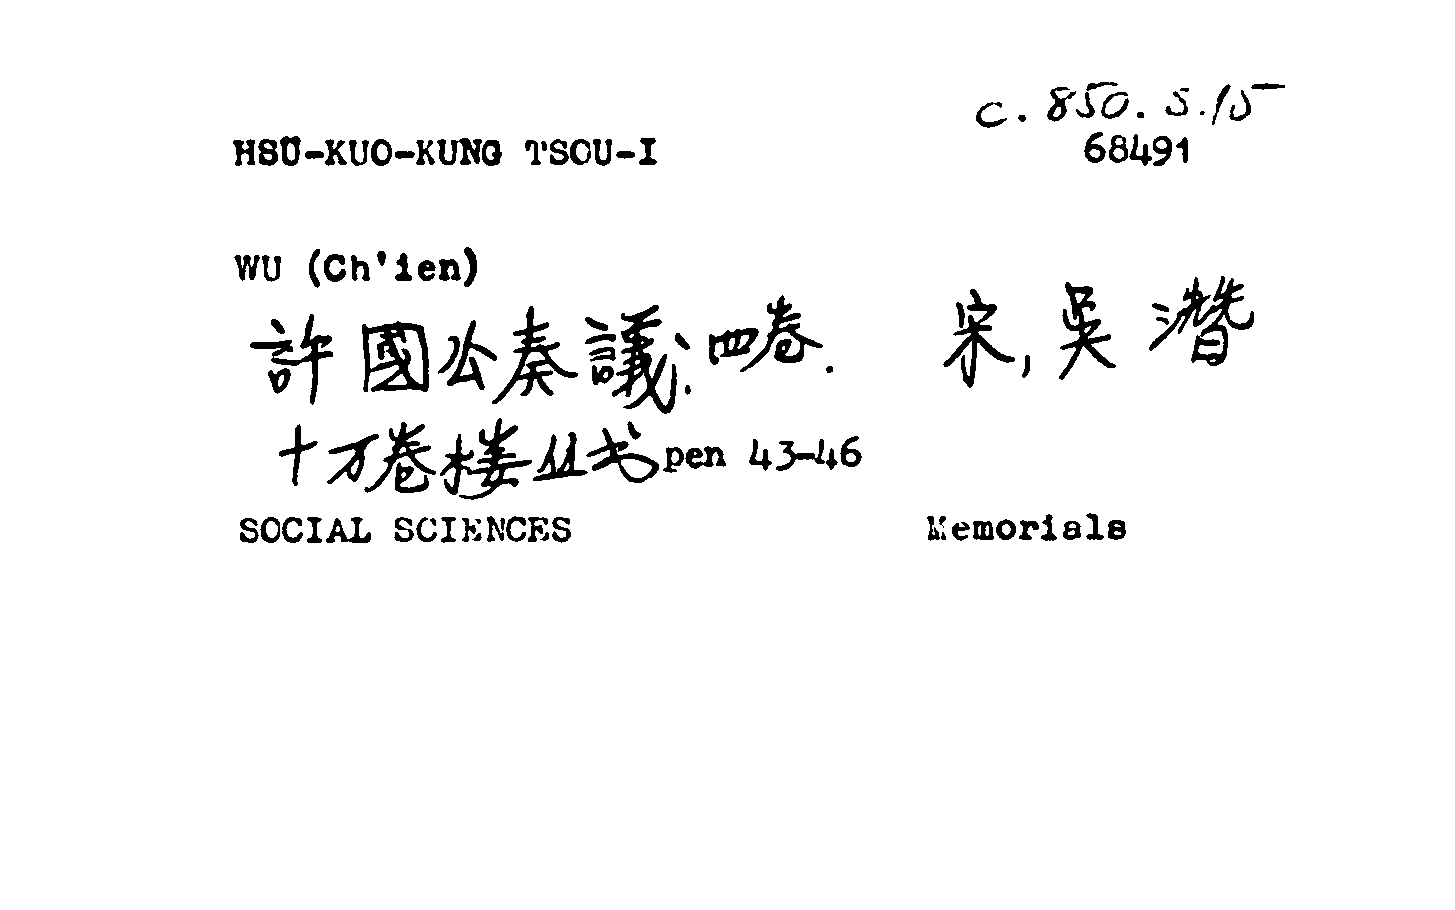 c. 850. s. 15
HSÜ-KUO-KUNG TSOU-I 68491
WU (Ch'ien)
許國公奏議; 四卷. 宋, 吳潛
十万卷楼丛书 pen 43-46
SOCIAL SCIENCES Memorials